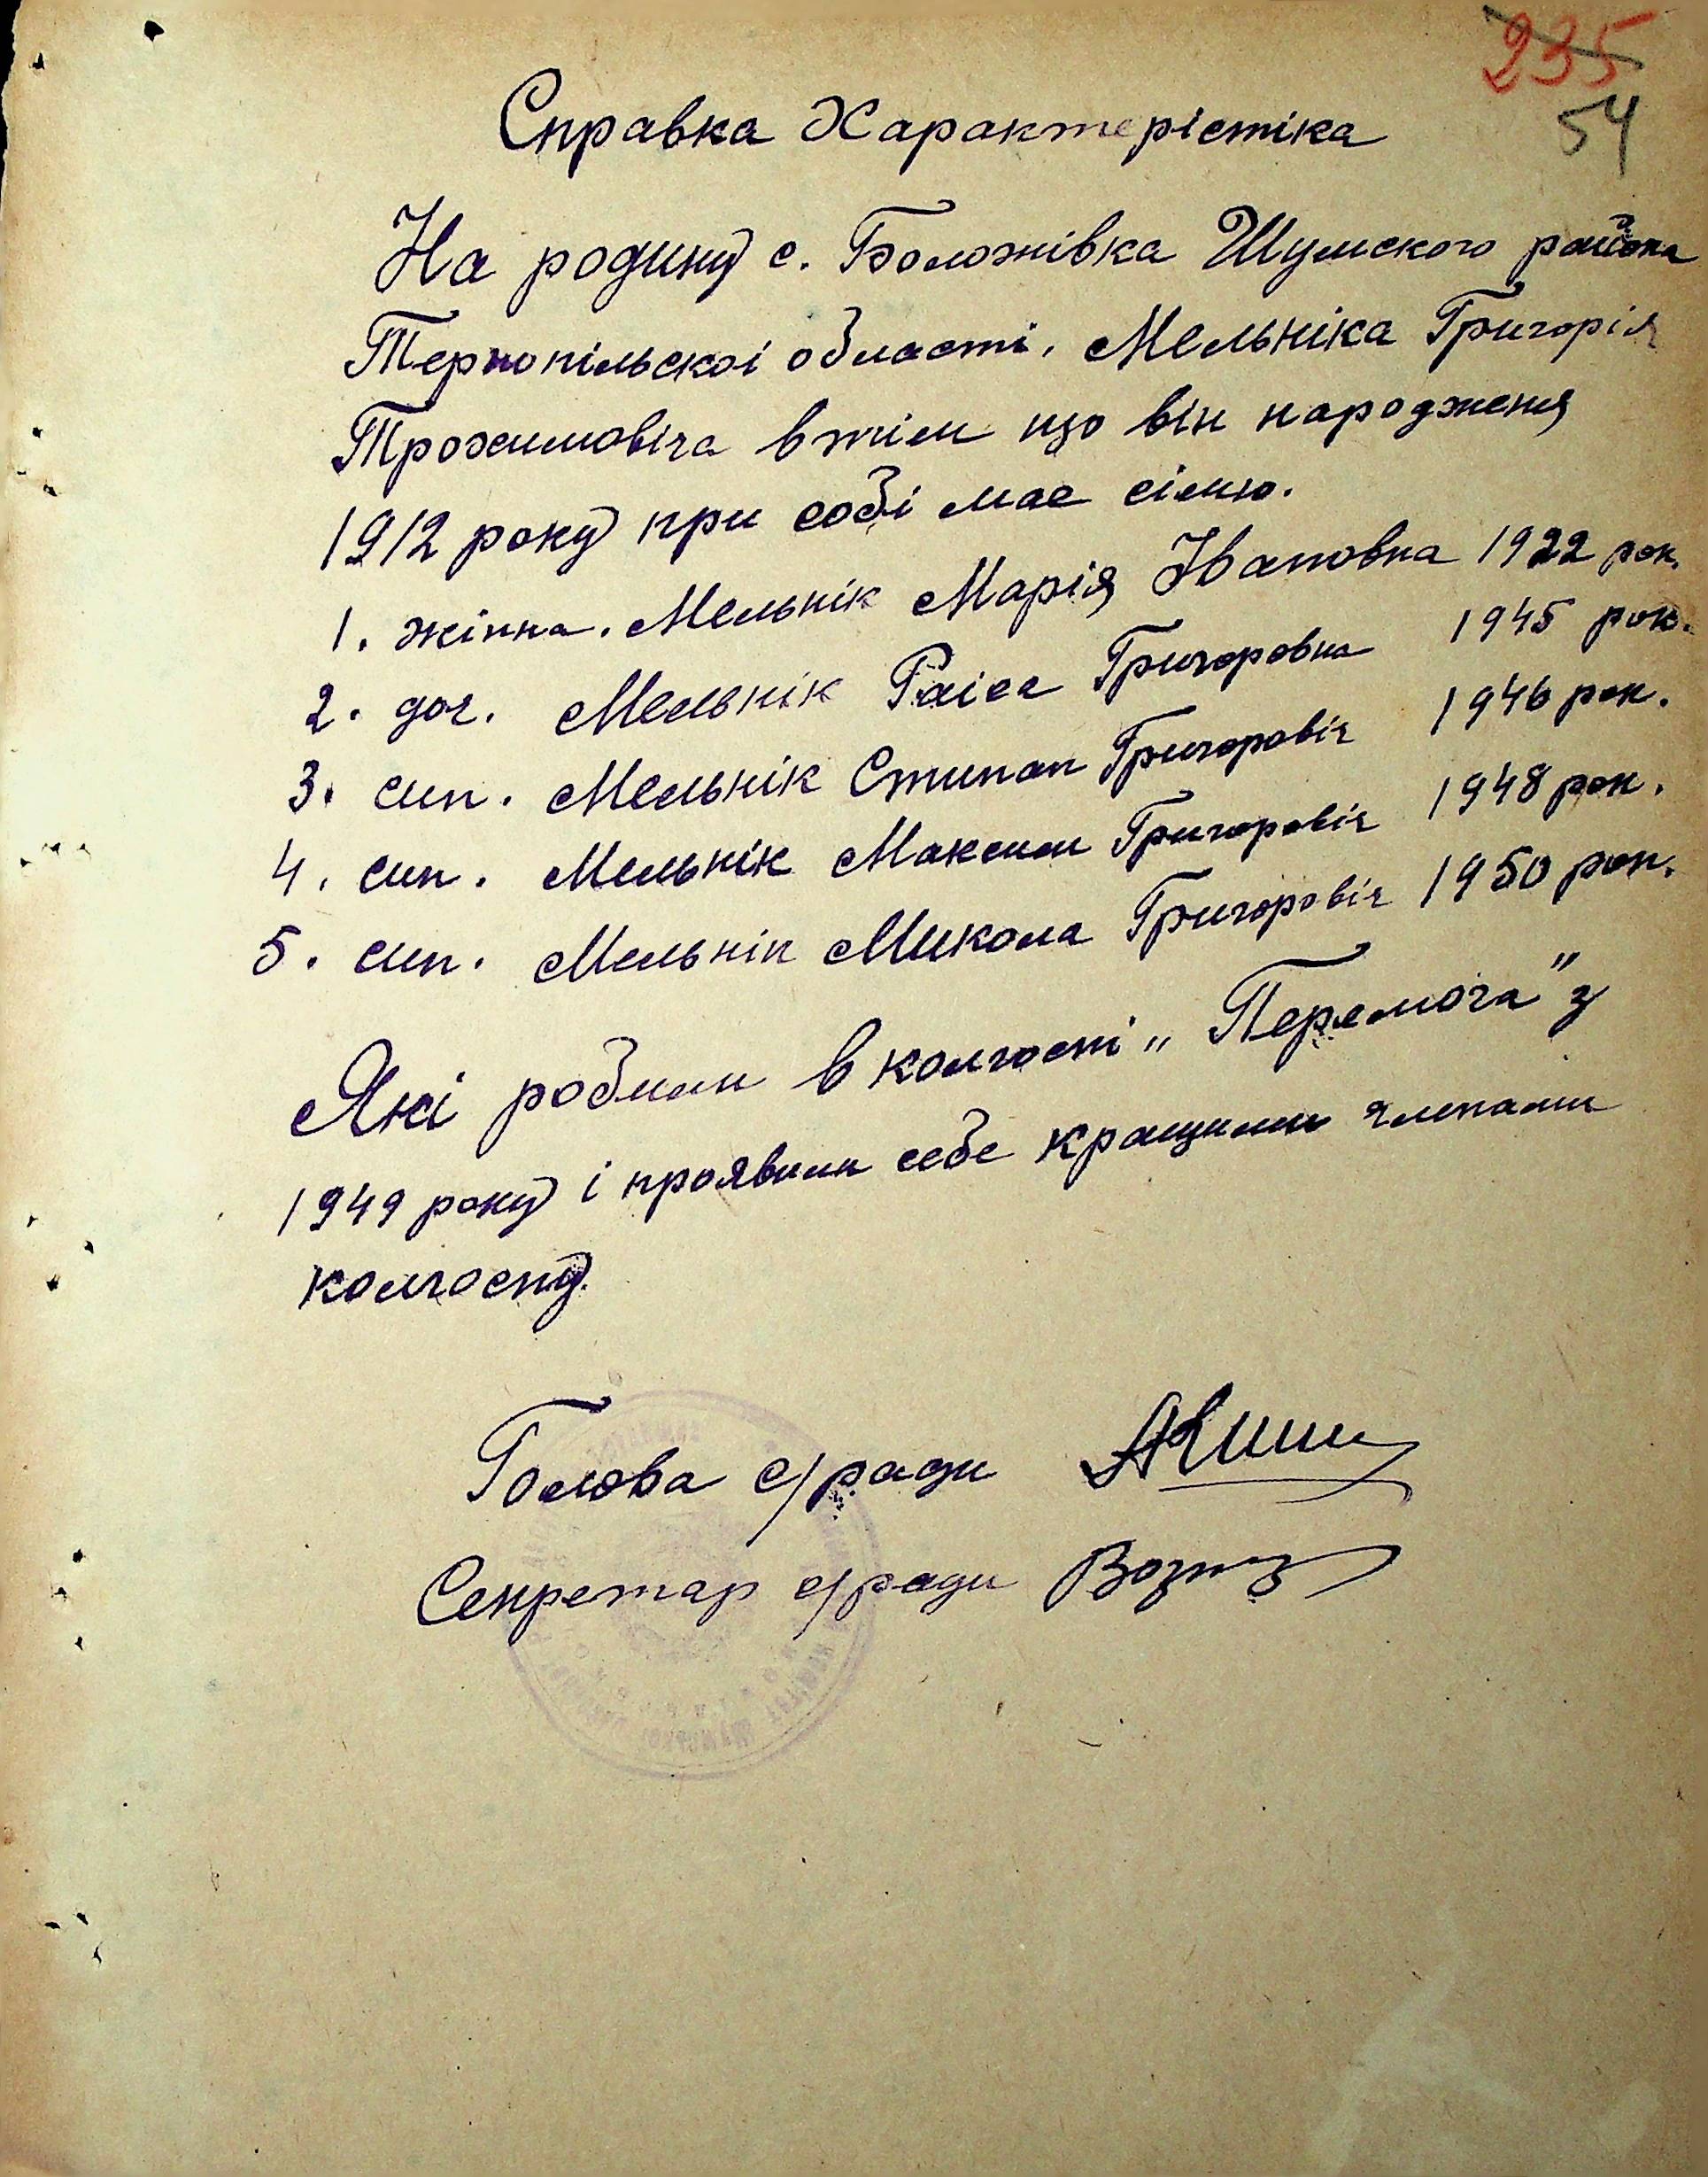 235
54
Справка Характерістіка
На родину с. Боложівка Шумского района
Тернопільскоі області. Мельніка Григорія
Трохимовіча в тім що він народження
1912 року при собі має сімю.
1. жінка. Мельнік Марія Івановна 1922 рок.
2. доч. Мельнік Раіса Григоровна 1945 рок.
3. син. Мельнік Стипан Григоровіч 1946 рок.
4. син. Мельнік Максим Григоровіч 1948 рок.
5. син. Мельнік Микола Григоровіч 1950 рок.
Які робили в колгості „Перемога" з
1949 року і проявили себе кращими членами
колгоспу.
Голова с/ради
Секретар с/ради